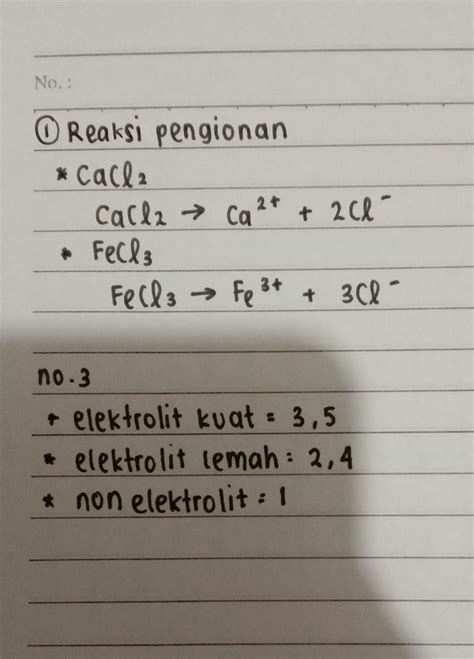 No. :
① Reaksi pengionan
* CaCl₂
CaCl₂ → Ca²⁺ + 2Cl⁻
* FeCl₃
FeCl₃ → Fe³⁺ + 3Cl⁻
no. 3
* elektrolit kuat = 3,5
* elektrolit lemah = 2,4
* non elektrolit = 1